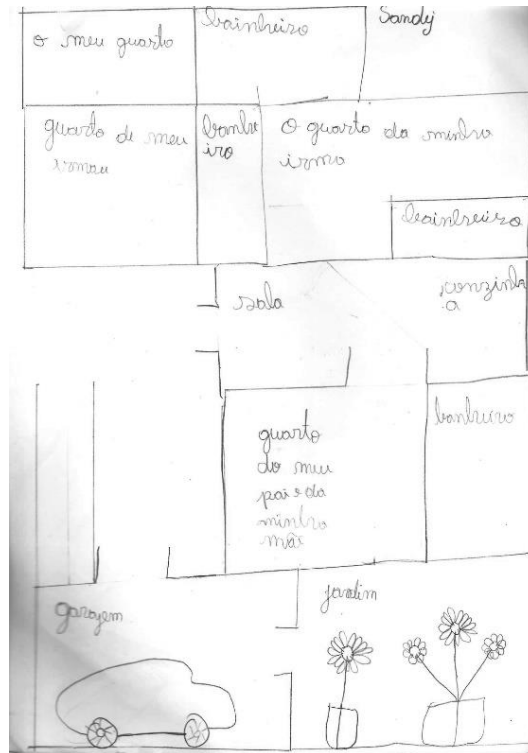 Sandy
o meu quarto
bainheiro
quarto de meu
irmau
banhe
iro
O quarto da minha
irma
bainheiro
sala
conzinh
a
quarto
do meu
pai e da
minha
mãe
banheiro
garajem
jardim